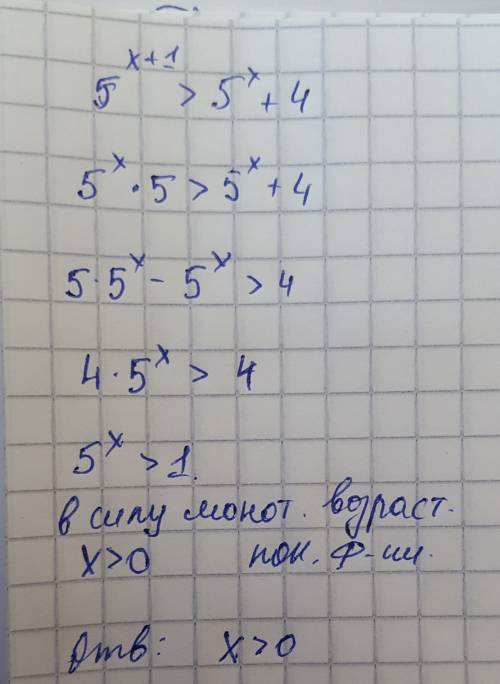 5^{x+1} > 5^x + 4
5^x · 5 > 5^x + 4
5·5^x - 5^x > 4
4·5^x > 4
5^x > 1.
в силу монот. возраст.
x>0 пок. ф-ии.
Отв: x>0